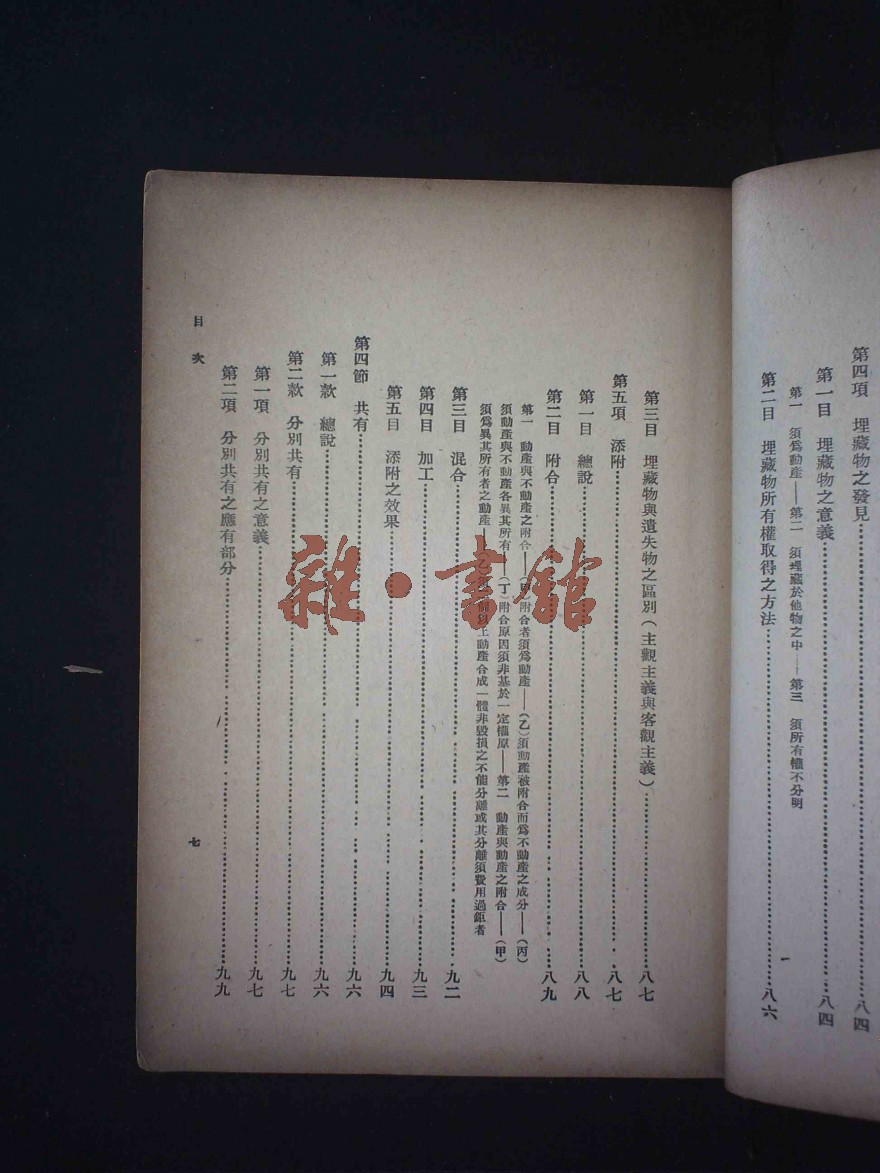 第四項 埋藏物之發見……八四
第一目 埋藏物之意義……八四
第一 須爲動產——第二 須埋藏於他物之中——第三 須所有權不分明
第二目 埋藏物所有權取得之方法……八六
一
第三目 埋藏物與遺失物之區別(主觀主義與客觀主義)……八七
第五項 添附……八七
第一目 總說……八八
第二目 附合……八九
第一 動產與不動產之附合——(甲)附合者須爲動產——(乙)須動產被附合而爲不動產之成分——(丙)
須動產與不動產各異其所有——(丁)附合原因須非基於一定權原——第二 動產與動產之附合——(甲)
須爲異其所有者之動產——(乙)動產合成一體非毀損之不能分離或其分離須費用過鉅者
第三目 混合……九二
第四目 加工……九三
第五目 添附之效果……九四
第四節 共有……九六
第一款 總說……九六
第二款 分別共有……九七
第一項 分別共有之意義……九七
第二項 分別共有之應有部分……九九
目次
七
雜·書館